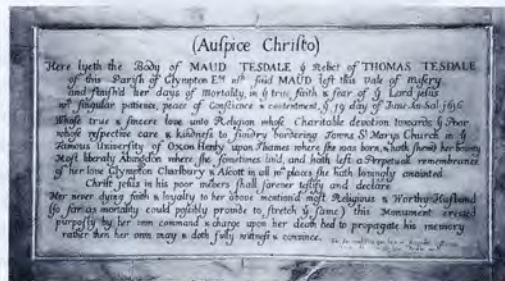 (Auspice Christo)
Here lyeth the Body of MAUD TESDALE ẏ Relict of THOMAS TESDALE
of this Parish of Glympton Esq. wch. said MAUD left this Vale of misery
and finish'd her days of Mortality, in ẏ true, faith & fear of ẏ Lord jesus
wt. singular patience, peace of Conscience & contentment, ẏ 19 day of June An. Sal. 1616
Whose true & sincere love unto Religion whose Charitable devotion towards ẏ Poor
whose respective care & kindness to sundry bordering Towns St Marys Church in ẏ
Famous University of Oxon Henly upon Thames where she was born, & hath shewd her bounty
Most liberaly Abingdon where she sometimes livd, and hath left a Perpetual remembrance
of her love Glympton Charlbury & Ascott in all wch. places she hath lovingly anointed
Christ Jesus in his poor mēbers shall forever testify and declare
Her never dying faith & loyalty to her above mention'd most Religious & Worthy Husband
(so far as mortality could possibly provide to stretch ẏ same) this Monument erected
purposly by her own command & charge upon her death bed to propagate his memory
rather then her own may & doth fully witness & convince.